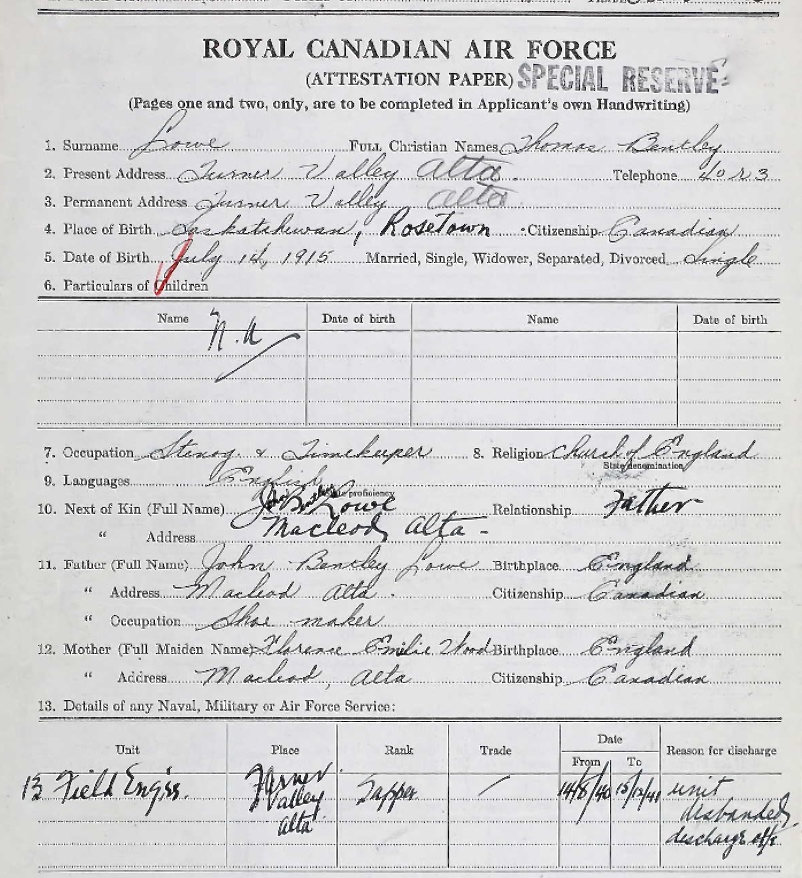 ROYAL CANADIAN AIR FORCE
(ATTESTATION PAPER) SPECIAL RESERVE
(Pages one and two, only, are to be completed in Applicant's own Handwriting)
1. Surname Lowe FULL Christian Names Thomas Bentley
2. Present Address Turner Valley Alta. Telephone 40 R 3
3. Permanent Address Turner Valley Alta.
4. Place of Birth Saskatchewan, Rosetown Citizenship Canadian
5. Date of Birth July 14, 1915 Married, Single, Widower, Separated, Divorced Single
6. Particulars of Children
Name Date of birth Name Date of birth
N.A
7. Occupation Stenog & Timekeeper 8. Religion Church of England
State denomination
9. Languages English
proficiency
10. Next of Kin (Full Name) Jno Bentley Lowe Relationship Father
" Address Macleod, Alta -
11. Father (Full Name) John Bentley Lowe Birthplace England
" Address Macleod Alta. Citizenship Canadian
" Occupation Shoe maker
12. Mother (Full Maiden Name) Florence Emilie Wood Birthplace England
" Address Macleod, Alta Citizenship Canadian
13. Details of any Naval, Military or Air Force Service:
Unit Place Rank Trade Date Reason for discharge
From To
13 Field Eng'rs. Turner Valley Alta Sapper / 14/8/40 15/12/41 unit disbanded discharge